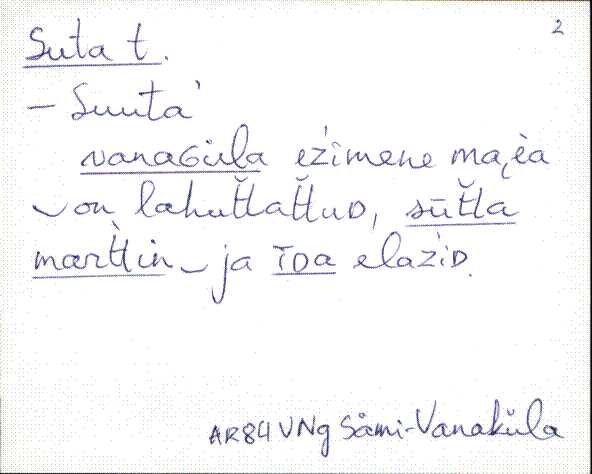 2
Suta t.
– Suuta'
vanaGüla ežimene maja
on lahut̆t̆at̆t̆uD, sūt̆t̆a
mært̀t̀in ja īDa elaźiD.
AR84 VNg Sämi-Vanaküla